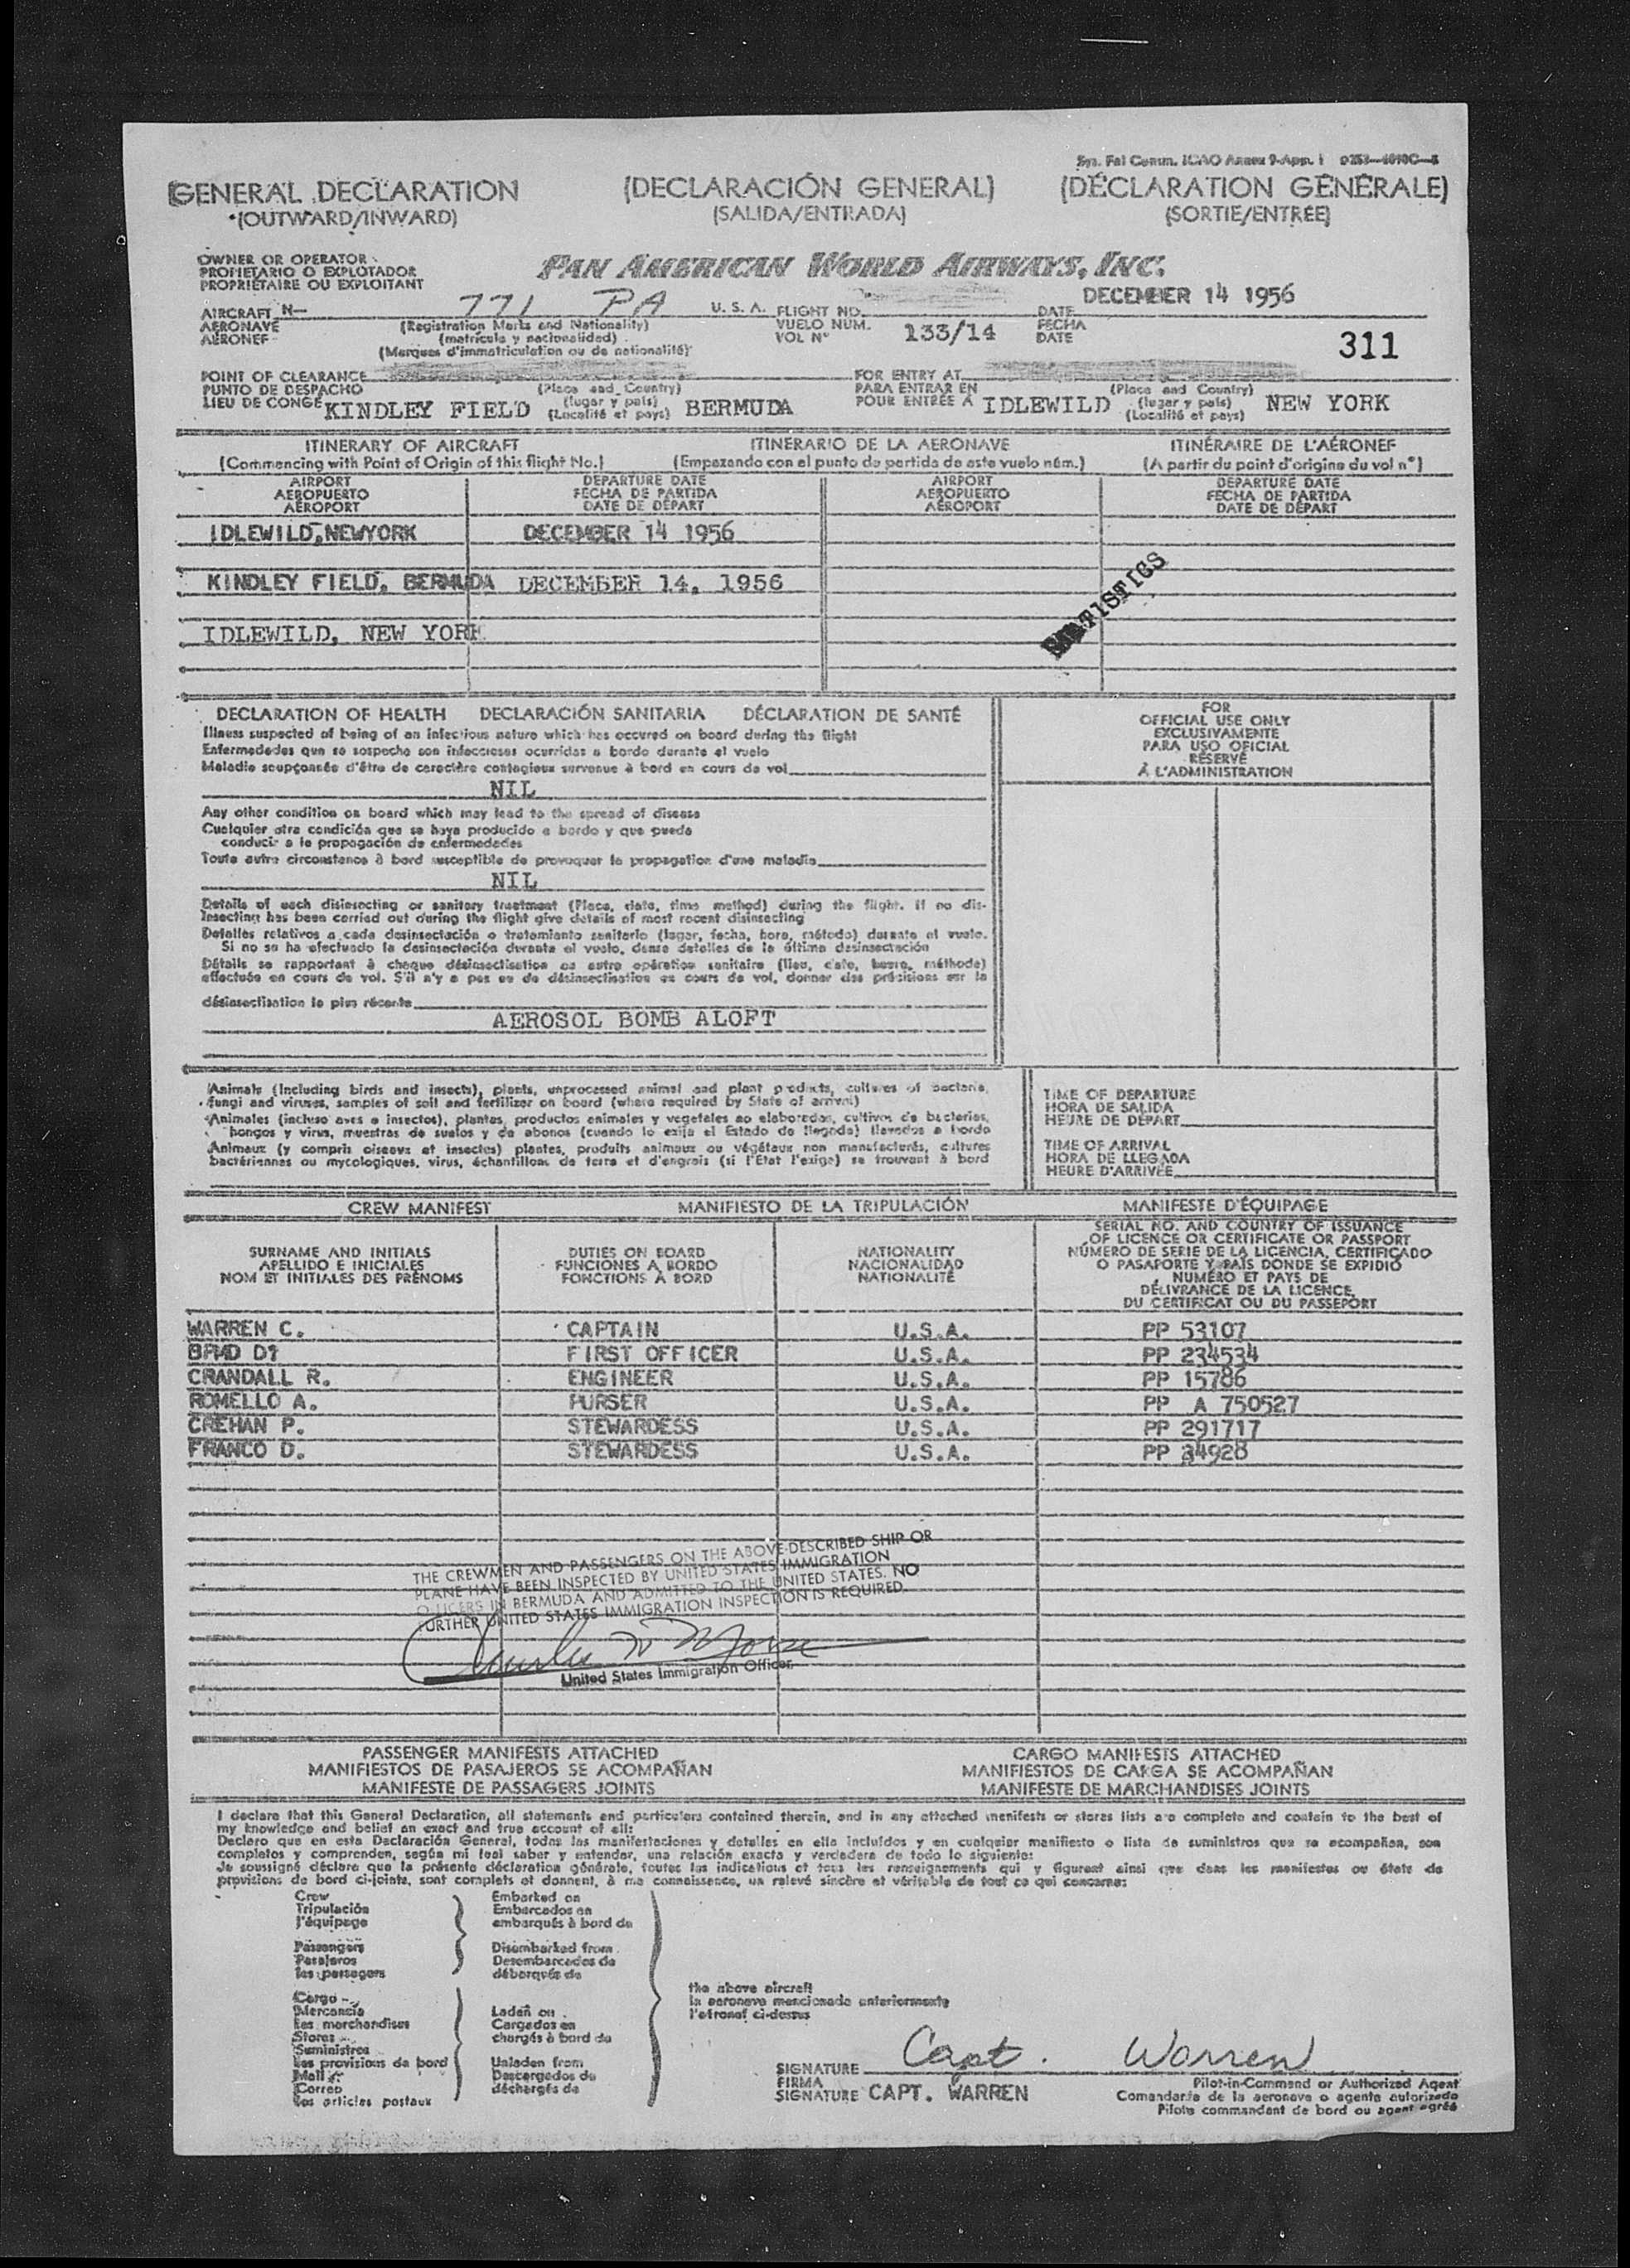 Sys. Fal Comm. ICAO Annex 9-App. 1
GENERAL DECLARATION (DECLARACIÓN GENERAL) (DÉCLARATION GÉNÉRALE)
(OUTWARD/INWARD) (SALIDA/ENTRADA) (SORTIE/ENTRÉE)
OWNER OR OPERATOR
PROPIETARIO O EXPLOTADOR
PROPRIÉTAIRE OU EXPLOITANT
PAN AMERICAN WORLD AIRWAYS, INC.
AIRCRAFT N— 771 PA U. S. A. FLIGHT NO. DATE DECEMBER 14 1956
AERONAVE (Registration Marks and Nationality) VUELO NUM. 133/14 FECHA
AÉRONEF (matrícula y nacionalidad) VOL N° DATE
(Marques d'immatriculation ou de nationalité)
311
POINT OF CLEARANCE FOR ENTRY AT
PUNTO DE DESPACHO (Place and Country) PARA ENTRAR EN (Place and Country)
LIEU DE CONGÉ KINDLEY FIELD (lugar y país) BERMUDA POUR ENTRÉE A IDLEWILD (lugar y país) NEW YORK
(Localité et pays) (Localité et pays)
ITINERARY OF AIRCRAFT ITINERARIO DE LA AERONAVE ITINÉRAIRE DE L'AÉRONEF
(Commencing with Point of Origin of this flight No.) (Empezando con el punto de partida de este vuelo núm.) (A partir du point d'origine du vol n°)
AIRPORT DEPARTURE DATE AIRPORT DEPARTURE DATE
AEROPUERTO FECHA DE PARTIDA AEROPUERTO FECHA DE PARTIDA
AÉROPORT DATE DE DÉPART AÉROPORT DATE DE DÉPART
IDLEWILD, NEWYORK DECEMBER 14 1956
KINDLEY FIELD, BERMUDA DECEMBER 14, 1956
STATISTICS
IDLEWILD, NEW YORK
DECLARATION OF HEALTH DECLARACIÓN SANITARIA DÉCLARATION DE SANTÉ
FOR
OFFICIAL USE ONLY
EXCLUSIVAMENTE
PARA USO OFICIAL
RÉSERVÉ
À L'ADMINISTRATION
Illness suspected of being of an infectious nature which has occured on board during the flight
Enfermedades que se sospecha son infecciosas ocurridas a bordo durante el vuelo
Maladie soupçonnée d'être de caractère contagieux survenue à bord en cours de vol
NIL
Any other condition on board which may lead to the spread of disease
Cualquier otra condición que se haya producido a bordo y que pueda
conducir a la propagación de enfermedades
Toute autre circonstance à bord susceptible de provoquer la propagation d'une maladie
NIL
Details of each disinsecting or sanitary treatment (Place, date, time method) during the flight. If no dis-
insecting has been carried out during the flight give details of most recent disinsecting
Detalles relativos a cada desinsectación o tratamiento sanitario (lugar, fecha, hora, método) durante el vuelo.
Si no se ha efectuado la desinsectación durante el vuelo, dense detalles de la última desinsectación
Détails se rapportant à chaque désinsectisation ou autre opération sanitaire (lieu, date, heure, méthode)
effectuée en cours de vol. S'il n'y a pas eu de désinsectisation en cours de vol, donner des précisions sur la
désinsectisation la plus récente
AEROSOL BOMB ALOFT
Animals (Including birds and insects), plants, unprocessed animal and plant products, cultures of bacteria,
fungi and viruses, samples of soil and fertilizer on board (where required by State of arrival)
Animales (incluso aves e insectos), plantas, productos animales y vegetales no elaborados, cultivos de bacterias,
hongos y virus, muestras de suelos y de abonos (cuando lo exija el Estado de llegada) llevados a bordo
Animaux (y compris oiseaux et insectes) plantes, produits animaux ou végétaux non manufacturés, cultures
bactériennes ou mycologiques, virus, échantillons de terre et d'engrais (si l'État l'exige) se trouvant à bord
TIME OF DEPARTURE
HORA DE SALIDA
HEURE DE DÉPART
TIME OF ARRIVAL
HORA DE LLEGADA
HEURE D'ARRIVÉE
CREW MANIFEST MANIFIESTO DE LA TRIPULACIÓN MANIFESTE D'ÉQUIPAGE
SURNAME AND INITIALS
APELLIDO E INICIALES
NOM ET INITIALES DES PRÉNOMS
DUTIES ON BOARD
FUNCIONES A BORDO
FONCTIONS À BORD
NATIONALITY
NACIONALIDAD
NATIONALITÉ
SERIAL NO. AND COUNTRY OF ISSUANCE
OF LICENCE OR CERTIFICATE OR PASSPORT
NÚMERO DE SERIE DE LA LICENCIA, CERTIFICADO
O PASAPORTE Y PAÍS DONDE SE EXPIDIÓ
NUMÉRO ET PAYS DE
DÉLIVRANCE DE LA LICENCE,
DU CERTIFICAT OU DU PASSEPORT
WARREN C. CAPTAIN U.S.A. PP 53107
FIRST OFFICER U.S.A. PP 234534
CRANDALL R. ENGINEER U.S.A. PP 15786
ROMELLO A. PURSER U.S.A. PP A 750527
CREHAN P. STEWARDESS U.S.A. PP 291717
FRANCO D. STEWARDESS U.S.A. PP 34928
THE CREWMEN AND PASSENGERS ON THE ABOVE-DESCRIBED SHIP OR
PLANE HAVE BEEN INSPECTED BY UNITED STATES IMMIGRATION
OFFICERS IN BERMUDA AND ADMITTED TO THE UNITED STATES. NO
FURTHER UNITED STATES IMMIGRATION INSPECTION IS REQUIRED.
United States Immigration Officer
PASSENGER MANIFESTS ATTACHED CARGO MANIFESTS ATTACHED
MANIFIESTOS DE PASAJEROS SE ACOMPAÑAN MANIFIESTOS DE CARGA SE ACOMPAÑAN
MANIFESTE DE PASSAGERS JOINTS MANIFESTE DE MARCHANDISES JOINTS
I declare that this General Declaration, all statements and particulars contained therein, and in any attached menifests or stores lists are complete and contain to the best of
my knowledge and belief an exact and true account of all:
Declaro que en esta Declaración General, todas las manifestaciones y detalles en ella incluídos y en cualquier manifiesto o lista de suministros que se acompañan, son
completos y comprenden, según mi leal saber y entender, una relación exacta y verdadera de todo lo siguiente:
Je soussigné déclare que la présente déclaration générale, toutes les indications et tous les renseignements qui y figurent ainsi que dans les manifestes ou états de
provisions de bord ci-joints, sont complets et donnent, à ma connaissance, un relevé sincère et véritable de tout ce qui concerne:
Crew Embarked on
Tripulación Embarcados en
l'équipage embarqués à bord de
Passengers Disembarked from
Pasajeros Desembarcados de
les passagers débarqués de
the above aircraft
la aeronave mencionada anteriormente
l'aéronef ci-dessus
Cargo
Mercancía Laden on
Les marchandises Cargados en
Stores chargés à bord de
Suministros
Les provisions de bord Unladen from
Mail Descargados de
Correo déchargés de
Les articles postaux
SIGNATURE Capt. Warren
FIRMA Pilot-in-Command or Authorized Agent
SIGNATURE CAPT. WARREN Comandante de la aeronave o agente autorizado
Pilote commandant de bord ou agent agréé